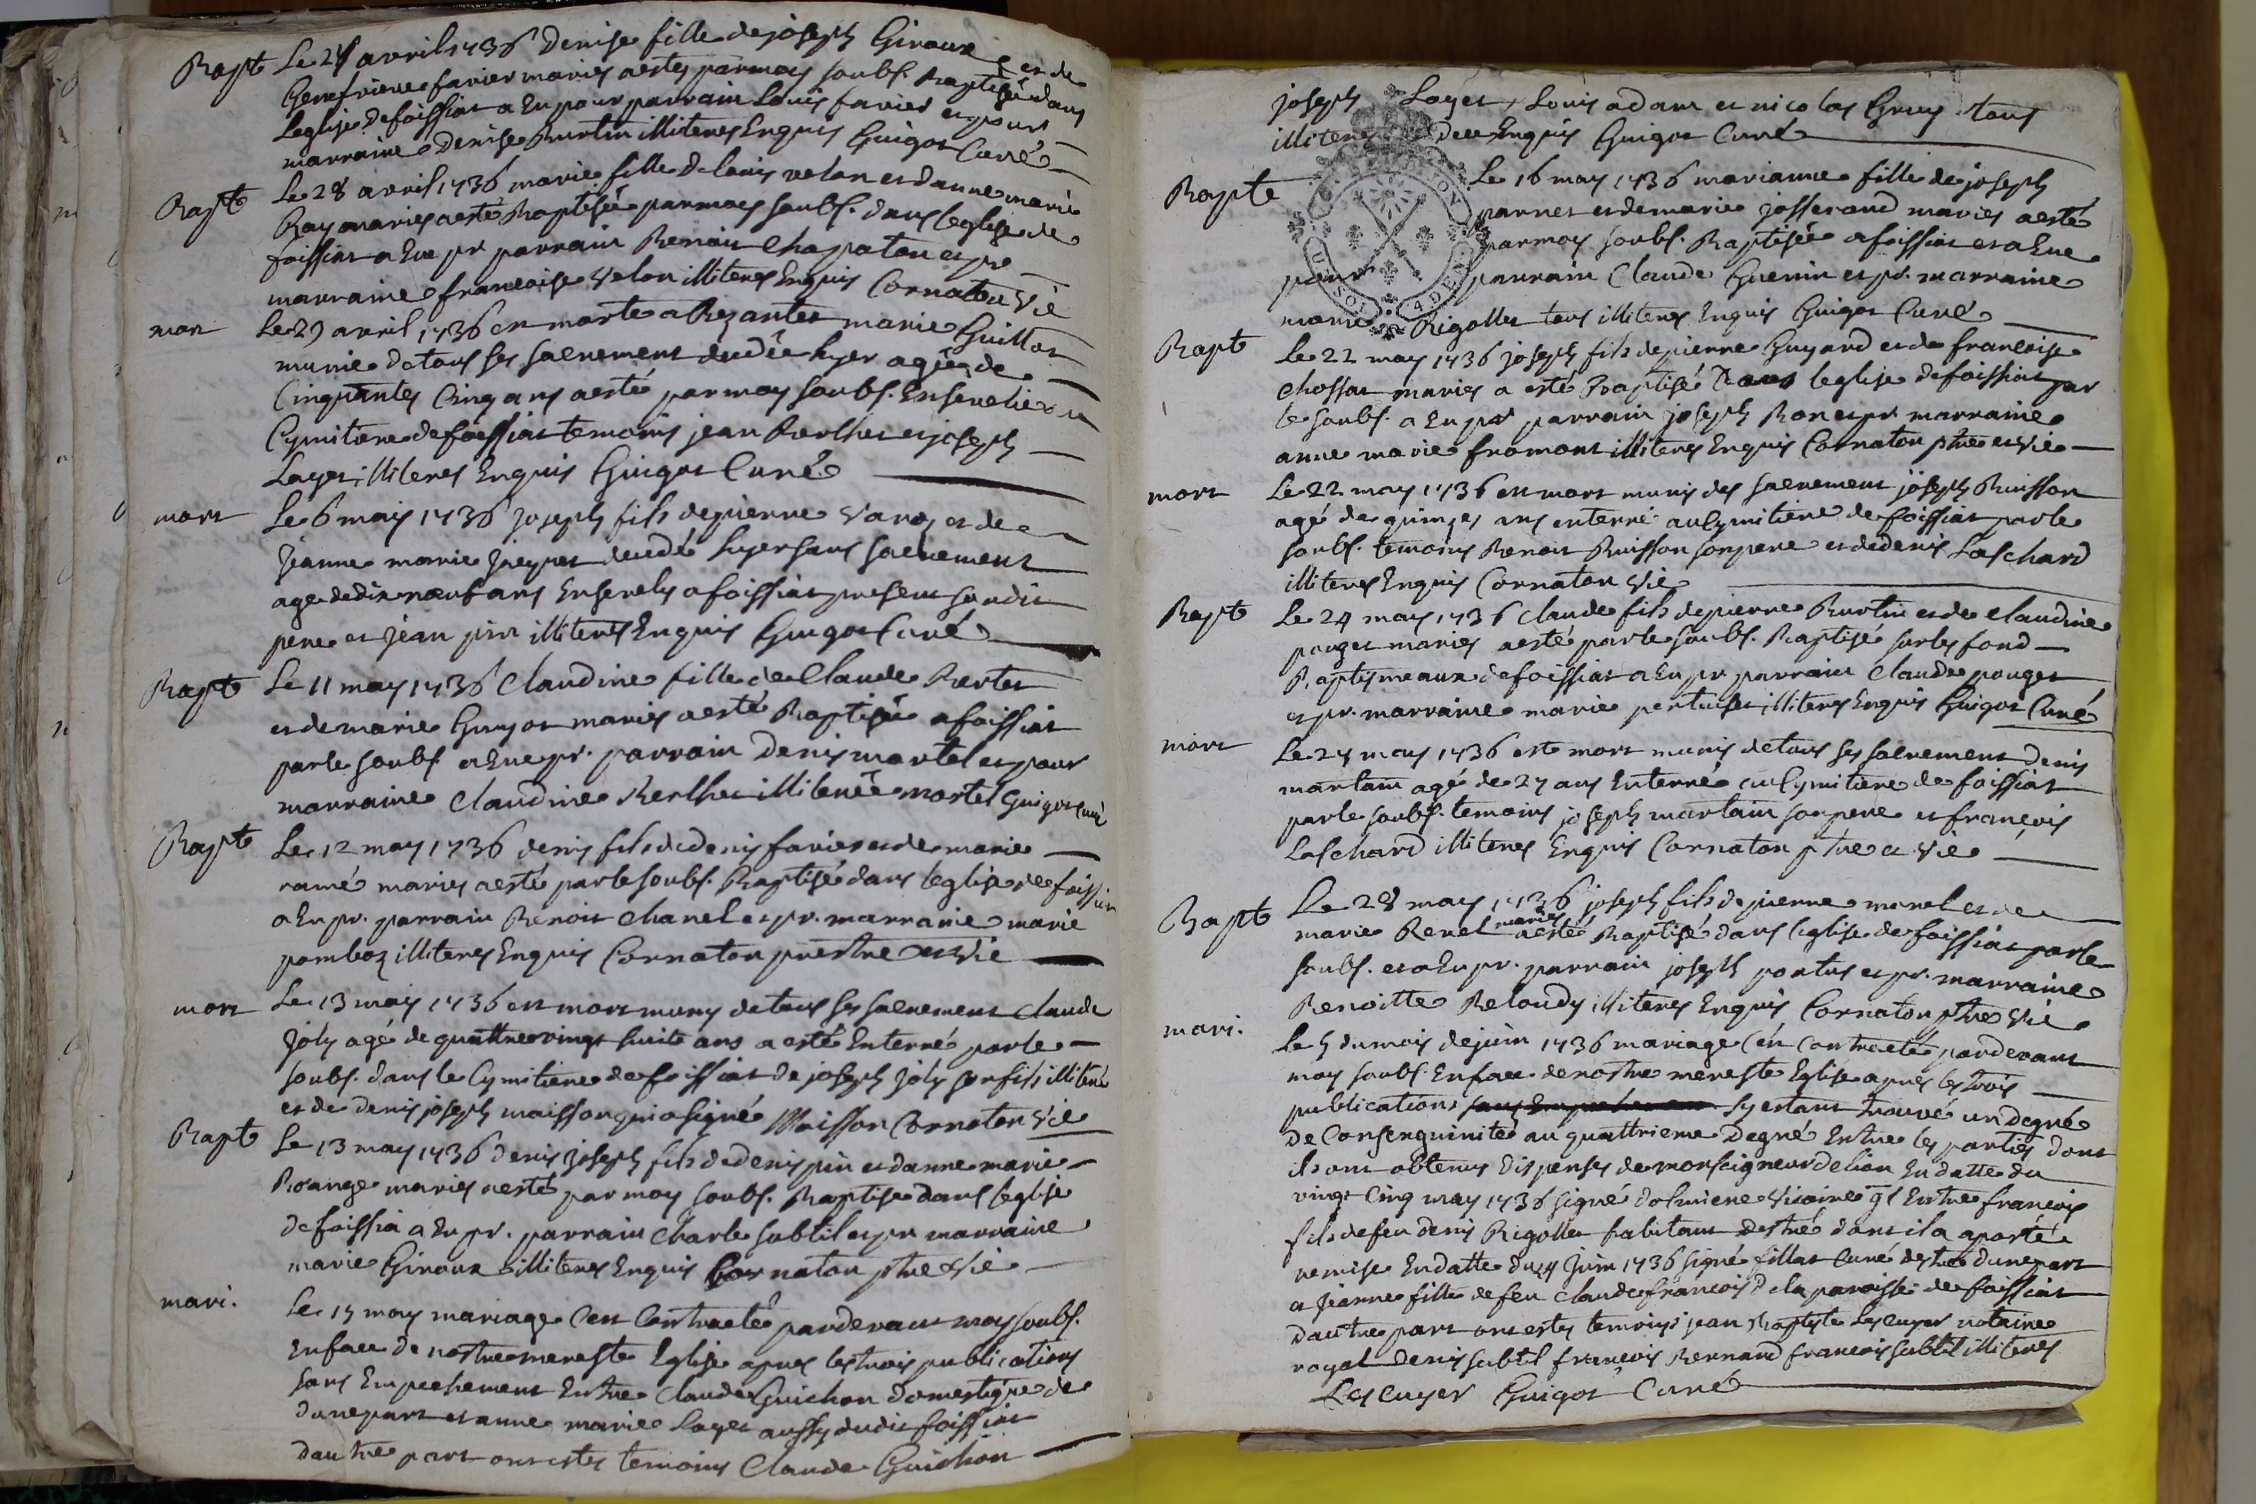 Bapt Le 24 avril 1736 Denise fille de joseph Giroux et de
Genefvieve favier mariés a esté par moy soubs. Baptisée dans
leglise de foissiat a Eu pour parrain Louis favier et pour
marraine Denise Burtin illiterés Enquis Guigot Curé
Bapt Le 28 avril 1736 marie fille de louis velon et danne marie
Ray mariés a esté Baptisée par moy soubs. dans leglise de
foissiat a Eue pr parrain Benoit Chapaton et pr
marraine francoise velon illiterés Enquis Cornaton vic
mort Le 29 avril 1736 est morte a Bezantet marie Guillot
munie de tous ses sacrement decedée hyer agée de
Cinquantes Cinq ans a esté par moy soubs. Ensevelie au
Cymitiere de foissiat temoins jean Berthet et joseph
Layet illiterés Enquis Guigot Curé
mort Le 6 may 1736 joseph fils de pierre varos et de
jeanne marie decedé hyer sans sacrement
age de dix neuf ans Ensevely a foissiat present sondit
pere et jean pin illiterés Enquis Guigot Curé
Bapt Le 11 may 1736 Claudine fille de Claude Bertet
et de marie Guyot mariés a esté Baptisée a foissiat
par le soubs a Eue pr. parrain Denis martel et pour
marraine Claudine Berthet illiterée martel Guigot Curé
Bapt Le 12 may 1736 denis fils de denis favier et de marie
ramé mariés a esté par le soubs. Baptisé dans leglise de foissiat
a Eu pr. parrain Benoit Chanel et pr. marraine marie
pomboz illiterés Enquis Cornaton prestre et vic
mort Le 13 may 1736 est mort muny de tous ses sacrement Claude
joly agé de quattre vingt huite ans a esté Enterré par le
soubs. dans le Cymitiere de foissiat de joseph joly son fils illiteré
et de denis joseph maisson qui a signé Maisson Cornaton vic
Bapt Le 13 may 1736 denis joseph fils de denis pin et danne marie
Borange mariés a esté par moy soubs. Baptisé dans leglise
de foissia a Eu pr. parrain Charle subtil et pr marraine
marie Giroux illiterés Enquis Cornaton ptre vic
mari. Le 15 may mariage Cest Contracté pardevant moy soubs.
En face de nostre mere ste Eglise apres les trois publications
sans Empechement Entre Claude Guichon domestique de
dune part et anne marie Layet aussy dudit foissiat
dautre part ont estés temoins Claude Guichon
joseph Layet, Louis adam et nicolas Gruy tous
illiterés de ce Enquis Guigot Curé
Bapte Le 16 may 1736 marianne fille de joseph
pannet et de marie josserand mariés a esté
par moy soubs. Baptisée a foissiat et a Eue
pour parrain Claude Guerin et pr. marraine
marie Rigollet tous illiterés Enquis Guigot Curé
Bapt Le 22 may 1736 joseph fils de pierre Guyard et de francoise
Chossat mariés a esté Baptisé Dans leglise de foissiat par
le soubs. a Eu pr parrain joseph Bon et pr marraine
anne marie fromont illiterés Enquis Cornaton ptre et vic
mort Le 22 may 1736 est mort munis des sacrement joseph Buisson
agé de quinzes ans enterré au Cymitiere de foissiat par le
soubs. temoins Benoit Buisson son pere et de denis Laschard
illiterés Enquis Cornaton vic
Bapt Le 24 may 1736 Claude fils de pierre Burtin et de Claudine
pouget mariés a esté par le soubs. Baptisé sur les fond
Baptismeaux de foissiat a Eu pr parrain Claude pouget
et pr. marraine marie pertuiset illiterés Enquis Guigot Curé
mort Le 24 may 1736 este mort munis de tous ses sacrement denis
martain agé de 27 ans Enterré au Cymitiere de foissiat
par le soubs. temoins joseph martain son pere et francois
Laschard illiterés Enquis Cornaton ptre et vic
Bapt Le 28 may 1736 joseph fils de pierre morel et de
marie Renel mariés a esté Baptisé dans leglise de foissiat par le
soubs. et a Eu pr. parrain joseph pontus et pr. marraine
Benoitte Beloudy illiterés Enquis Cornaton ptre vic
mari. Le 5 du mois de juin 1736 mariage Cest Contracté pardevant
moy soubs. En face de nostre mere ste Eglise apres les trois
publications sans Empechement sy estant trouvé un degré
de Consenguinité au quattrieme Degré Entre les parties dont
ils ont obtenus dispenses de monseigneur de lion En datte du
vingt Cinq may 1736 signé dolmiere vicaire gl Entre francois
fils de feu denis Rigollet habitant destré dont il a aporté
remise En datte du 4 juin 1736 signé fillat Curé destré dune part
a jeanne fille de feu Claude francois de la paroisse de foissiat
dautre part ont estés temoins jean Baptiste Lescuyer notaire
royal denis subtil francois Bernard francois subtil illiterés
Lescuyer Guigot Curé